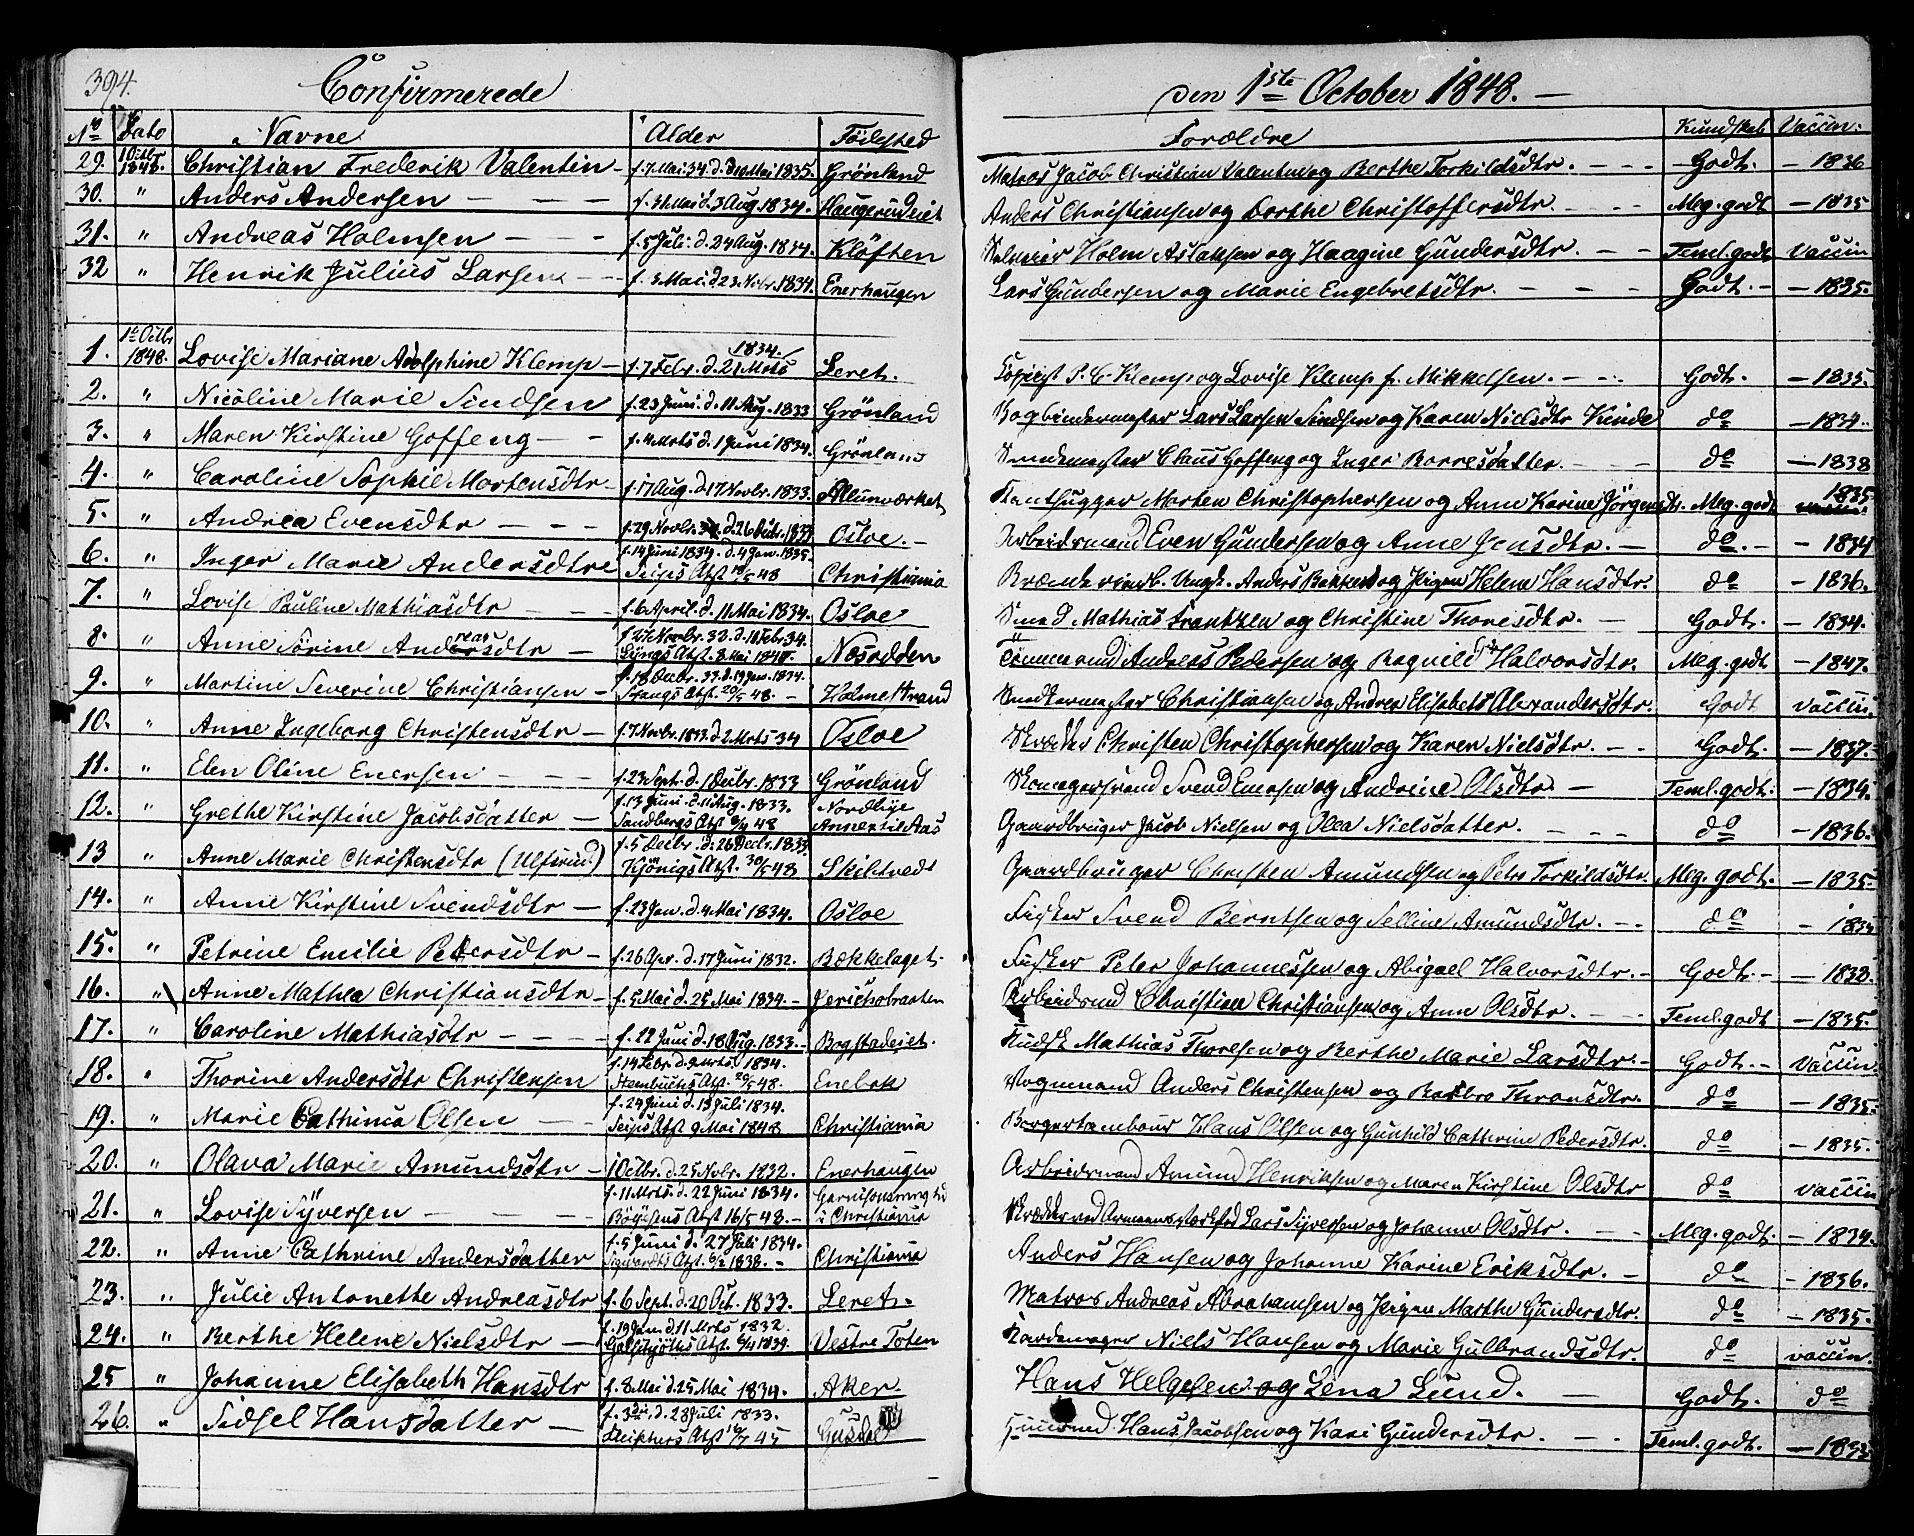 394.
Confirmerede
den 1ste October 1848. —
No Dato Navne Alder Födested Forældre Kundskab Vaccin.
29. 1 Octbr 1848. Christian Frederik Valentin f. 7 Mai 34. d. d. 10 Mai 1835. Grönland Matros Jacob Christian Valentin og Berthe Torkildsdtr. Godt. 1836
30. " Anders Andersen f. 31 Mai d. 3 Aug. 1834. Haugerudeiet Anders Christiansen og Dorthe Christoffersdtr. Meg. godt 1835
31. " Andreas Holmsen f. 5 Juli d. 24 Aug. 1834. Klöften Holm Aslaksen og Haagine Gundersdtr. Teml. godt Vaccin
32 " Henrik Julius Larsen f. 3 Mai. d 23 Nvbr. 1834. Enerhaugen Lars Gundersen og Marie Engebretsdtr. Godt. 1835.
1. 1ste Octbr 1848. Lovise Mariane Adolphine Klemp f. 7 Febr. d. 21 Mrts 1834. Leret. Copiist P. C. Klemp og Lovise Klemp f. Mikkelsen. Godt. 1835.
2. " Nicoline Marie Sindsen f. 23 Juni. d. 11 Aug. 1833 Grönland Bogbindermester Lars Larsen Sindsen og Karen Nielsdtr Kinde do 1834.
3. " Maren Kirstine Goffeng f. 4 Mrts d. 1 Juni 1834. Grönland Claus Goffeng og Inger Borresdatter. do 1838
4. " Caroline Sophie Mortensdtr f. 17 Aug. d 17 Novbr. 1833. Alunværket Morten Christophersen og Anne Karine Jörgensdtr. Meg. godt 1835
5. " Andrea Evensdtr f. 29 Novbr. d. 26 Osloe. Arbeidsmand Even Gundersen og Anne Jensdtr. do. 1834
6. " Inger Marie Andersdtre f. 14 Juni 1834. d. 4 Jan. 1835. Seips Atst 18/5 48 Christiania Anders Bakken og Pigen Helene Hansdtr. do 1836.
7. " Lovise Pauline Mathiasdtr f. 6 April. d. 11 Mai 1834. Osloe Smed Mathias Frantzen og Christine Thoresdtr. Godt. 1834.
8. " Anne Sörine Andreasdtr f. 27 Novbr. 33. d. 1 Febr. 34. Lÿngs Atst. 8 Mai 184 Næsodden Tömmermd Andreas Pedersen og Ragnild Halvorsdtr. Meg. godt 1847.
9. " Martine Severine Christiansen f. 18 Decbr. 33. d. 19 Jan. 1834. Atst 20/5 48. Holmestrand Snedkermester Christiansen og Andrea Elisabets Alexandersdtr. Godt Vaccin.
10. " Anne Ingeborg Christensdtr f. 7 Novbr. 1833. d. 2 Mrts 34 Osloe Skrædder Christen Christophersen og Karen Nielsdtr. Godt. 1837.
11. " Elen Oline Enersen f. 23 Sept. d. 1 Decbr. 1833 Grönland Svend Enersen og Andrine Olsdtr Teml. godt. 1834.
12. " Grethe Kirstine Jacobsdatter f. 13 Juni. d. 11 Aug. 1833. Sandbergs Atst 48 Nordbÿe Annex til Aas Gaardbruger Jacob Nielsen og Olea Nielsdatter. do 1836.
13 " Anne Marie Christensdtr (Ulfsrud) f. 5 Decbr. d. 26 Decbr. 1833 Königs Atst. 30/5 48 Skibtvedt Gaardbruger Christen Amundsen og Petro Torkildsdtr. Meg. godt. 1835.
14. " Anne Kirstine Svendsdtr f. 23 Jan. d. 4 Mai 1834. Osloe Fisker Svend Berntsen og Selline Amundsdtr. do
15. " Petrine Emilie Pedersdtr f. 26 Apr. d. 17 Juni 1832. Bækkelaget. Fisker Peter Johannessen og Abigael Halvorsdtr. Godt. 1838.
16. " Anne Mathea Christiansdtr f. 5 Mai d. 25 Mai 1834. Arbeidsmd Christian Christiansen og Anne Olsdtr. Teml. godt 1835.
17. " Caroline Mathiasdtr f. 22 Juni d. 18 Aug. 1833. Bogstadeiet. Mathias Thoresen og Berthe Marie Larsdtr. Godt. Vaccin
18. " Thorine Andersdtr Christensen f. 14 Febr. d. 9 Mrts. 1834. Stenbuchs Atst. 20/5 48. Enebak Vognmand Anders Christensen og Barbro Thronsdtr. do 1835.
19. " Marie Cathrina Olsen f. 24 Juni d. 13 Juli 1834. Seips Atst 9 Mai 1848 Christiania Borgertambour Hans Olsen og Gunhild Cathrine Pedersdtr. do 1835.
20. " Olava Marie Amundsdtr 1 Octbr. d. 25 Novbr. 1832. Enerhaugen Arbeidsmand Amund Henriksen og Maren Kirstine Olsdtr do Vaccin
21. " Lovise Sÿversen f. 11 Mrts. d. 22 Juni 1834. Atst 16/5 48. i Christiania Lars Sÿversen og Johanne Olsdtr. Meg. godt. 1834.
22. " Anne Cathrine Andersdatter f. 5 Juni d. 27 Juli 1834. Sigwardts Atst. 1838. Christiania Anders Hansen og Johanne Karine Eriksdtr. do 1836.
23. " Julie Antonette Andreasdtr f. 6 Sept. d. 20 Oct. 1833. Leret. Matros Andreas Abrahamsen og Pigen Marthe Gundersdtr. do 1835.
24. " Berthe Helene Nielsdtr f. 19 Jani d. 11 Mrts 1832. Atst. 1839. Vestre Toten Niels Hansen og Marie Gulbrandsdtr. do vaccin.
25 " Johanne Elisabeth Hansdtr f. 8 Mai d. 25 Mai 1834. Aker Hans Helgesen og Lena Lund. Godt. do
26. " Sidsel Hansdatter d. 28 Juli 1833. Atst 45 Hans Jacobsen og Kari Gundersdtr. Teml. godt.